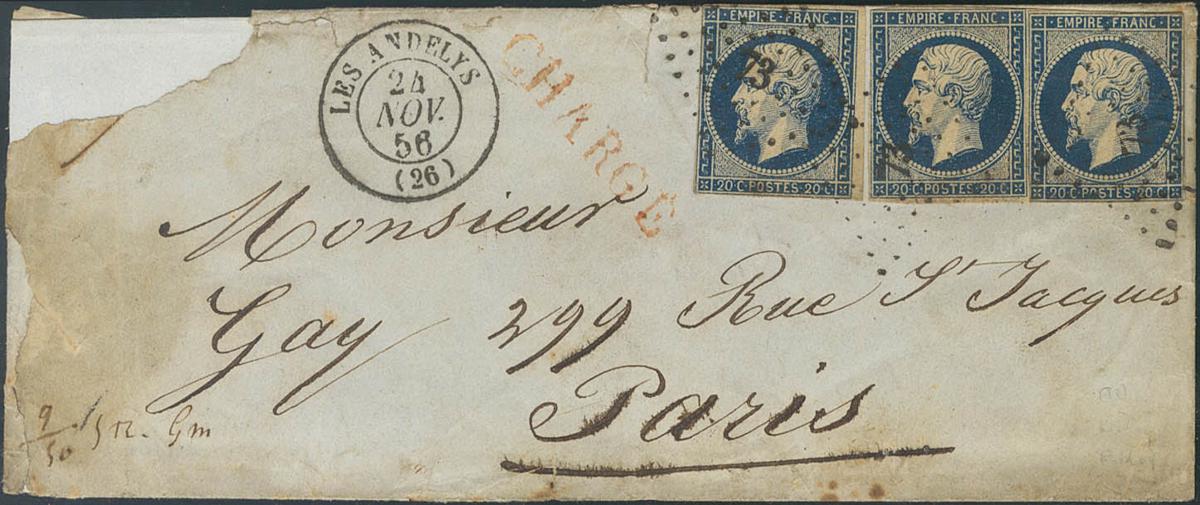 EMPIRE · FRANC · EMPIRE · FRANC · EMPIRE · FRANC
20 C · POSTES · 20 C 20 C · POSTES · 20 C 20 C · POSTES · 20 C
73
LES ANDELYS
24
NOV.
56
(26)
CHARGE
Monsieur
Gay 299 Rue St Jacques
Paris
9
50